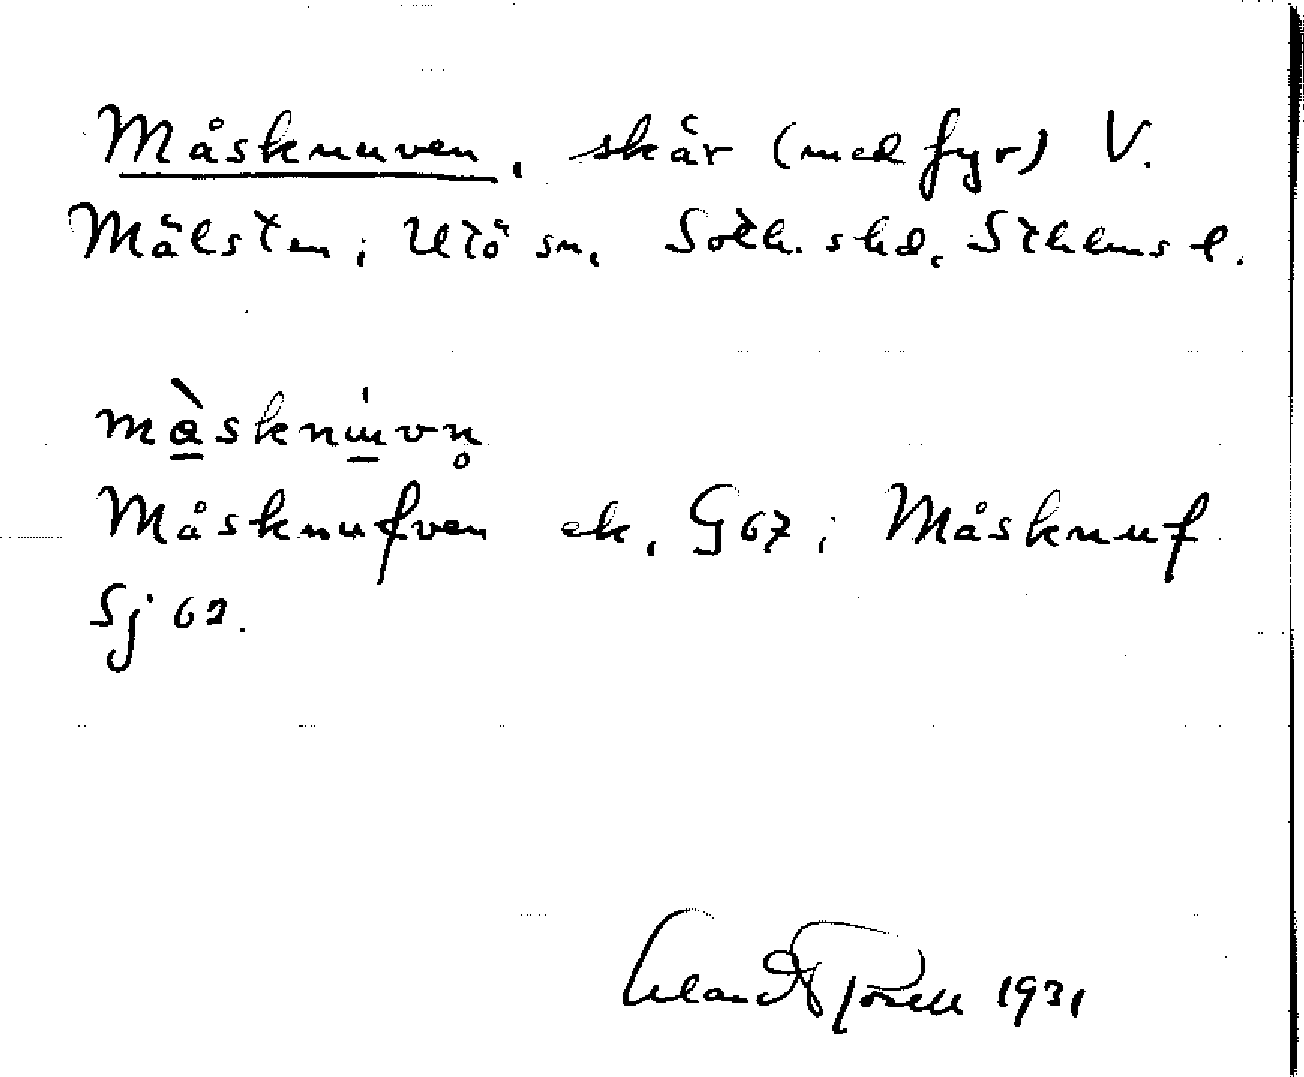 Måsknuven, skär (med fyr) V.
Mälsten, Utö sn, Soth. skd, Sthlms l.
måsknuvn̥
Måsknufven ek, G67; Måsknuf
Sj 62.
Rosell 1931